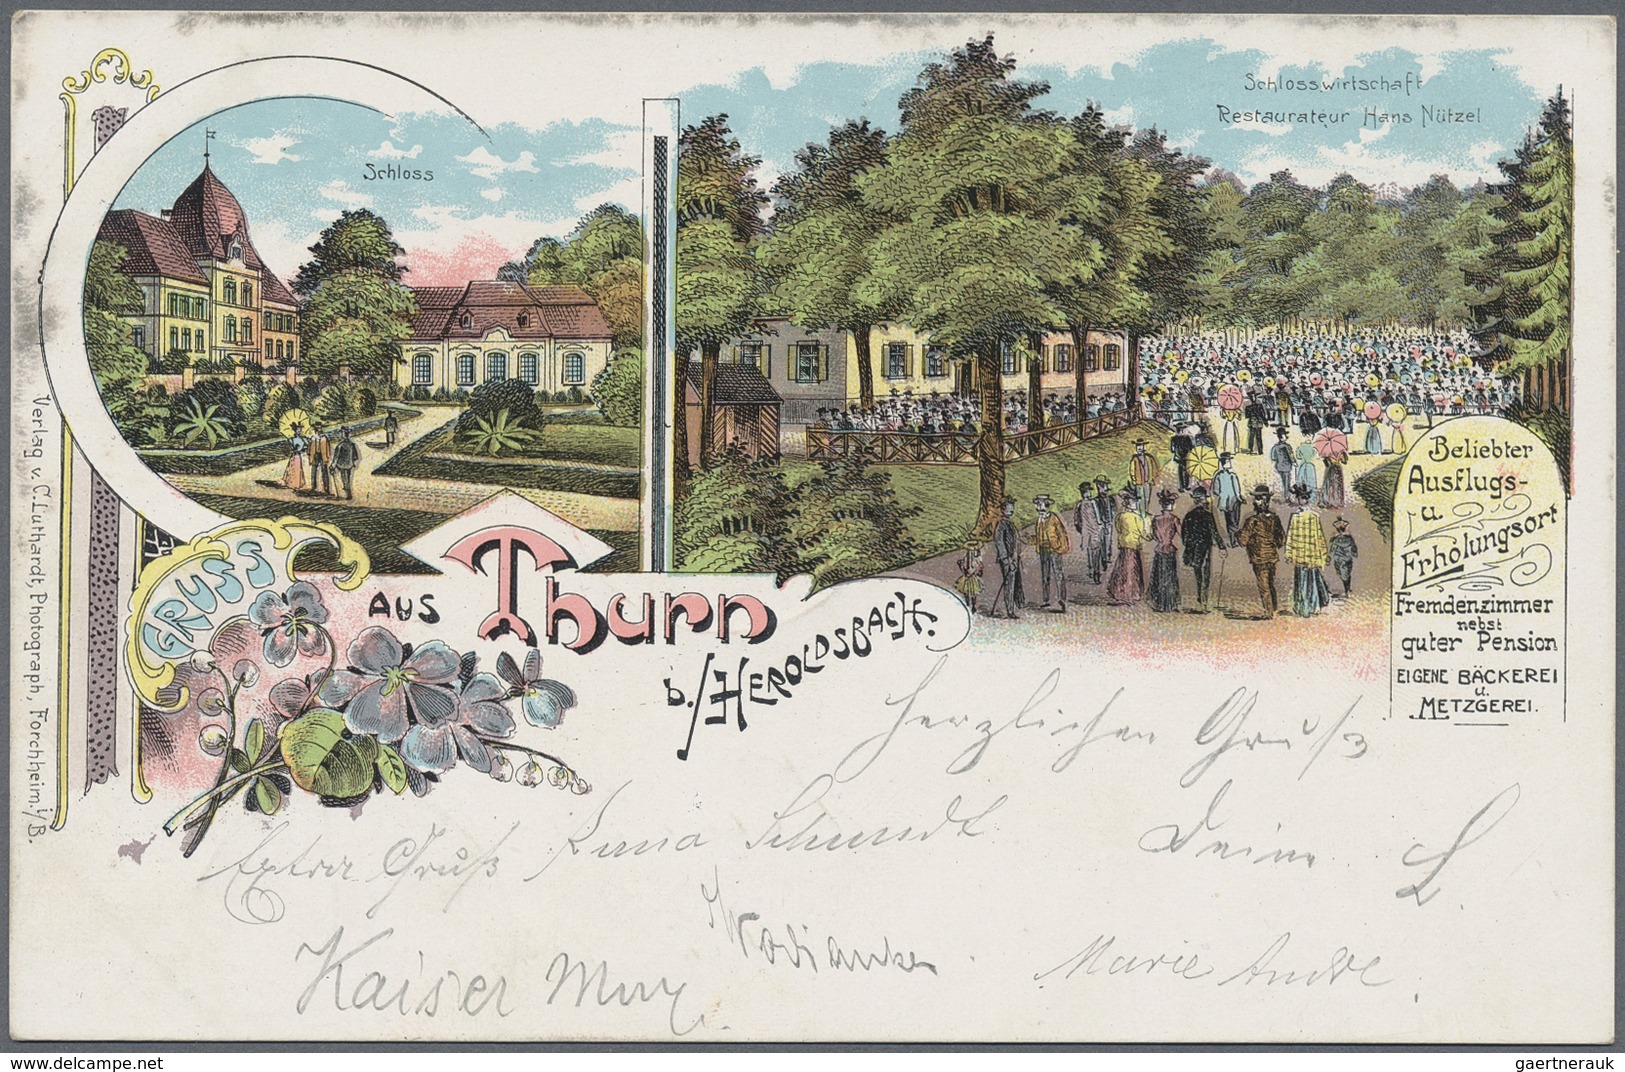 Schloss
Schlosswirtschaft
Restaurateur Hans Nützel
GRUSS
AUS Thurn
b./HEROLDSBACH.
Beliebter
Ausflugs-
u.
Erholungsort
Fremdenzimmer
nebst
guter Pension
EIGENE BÄCKEREI
u.
METZGEREI.
Verlag v. C. Luthardt, Photograph, Forchheim i/B.
Herzlichen Gruß
Deine L.
Extra Gruß Schmidt
Kaiser
Marie Andre.
www.delcampe.net
gaertnerauk